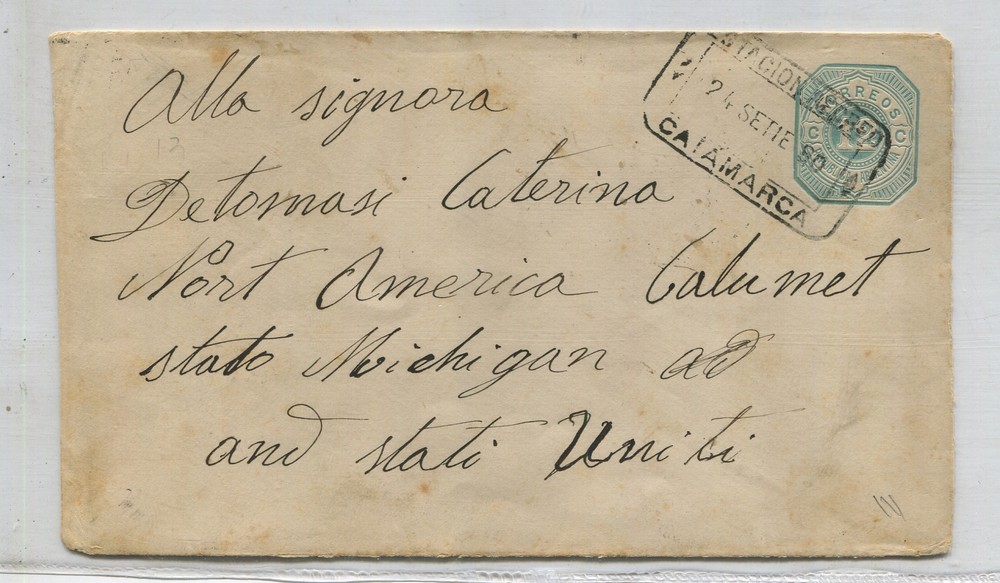 Alla signora
Detomasi Caterina
Nort America Calumet
stato Michigan ad
and stati Uniti
24 SETIE 90
CATAMARCA
CORREOS
C 12 C
13